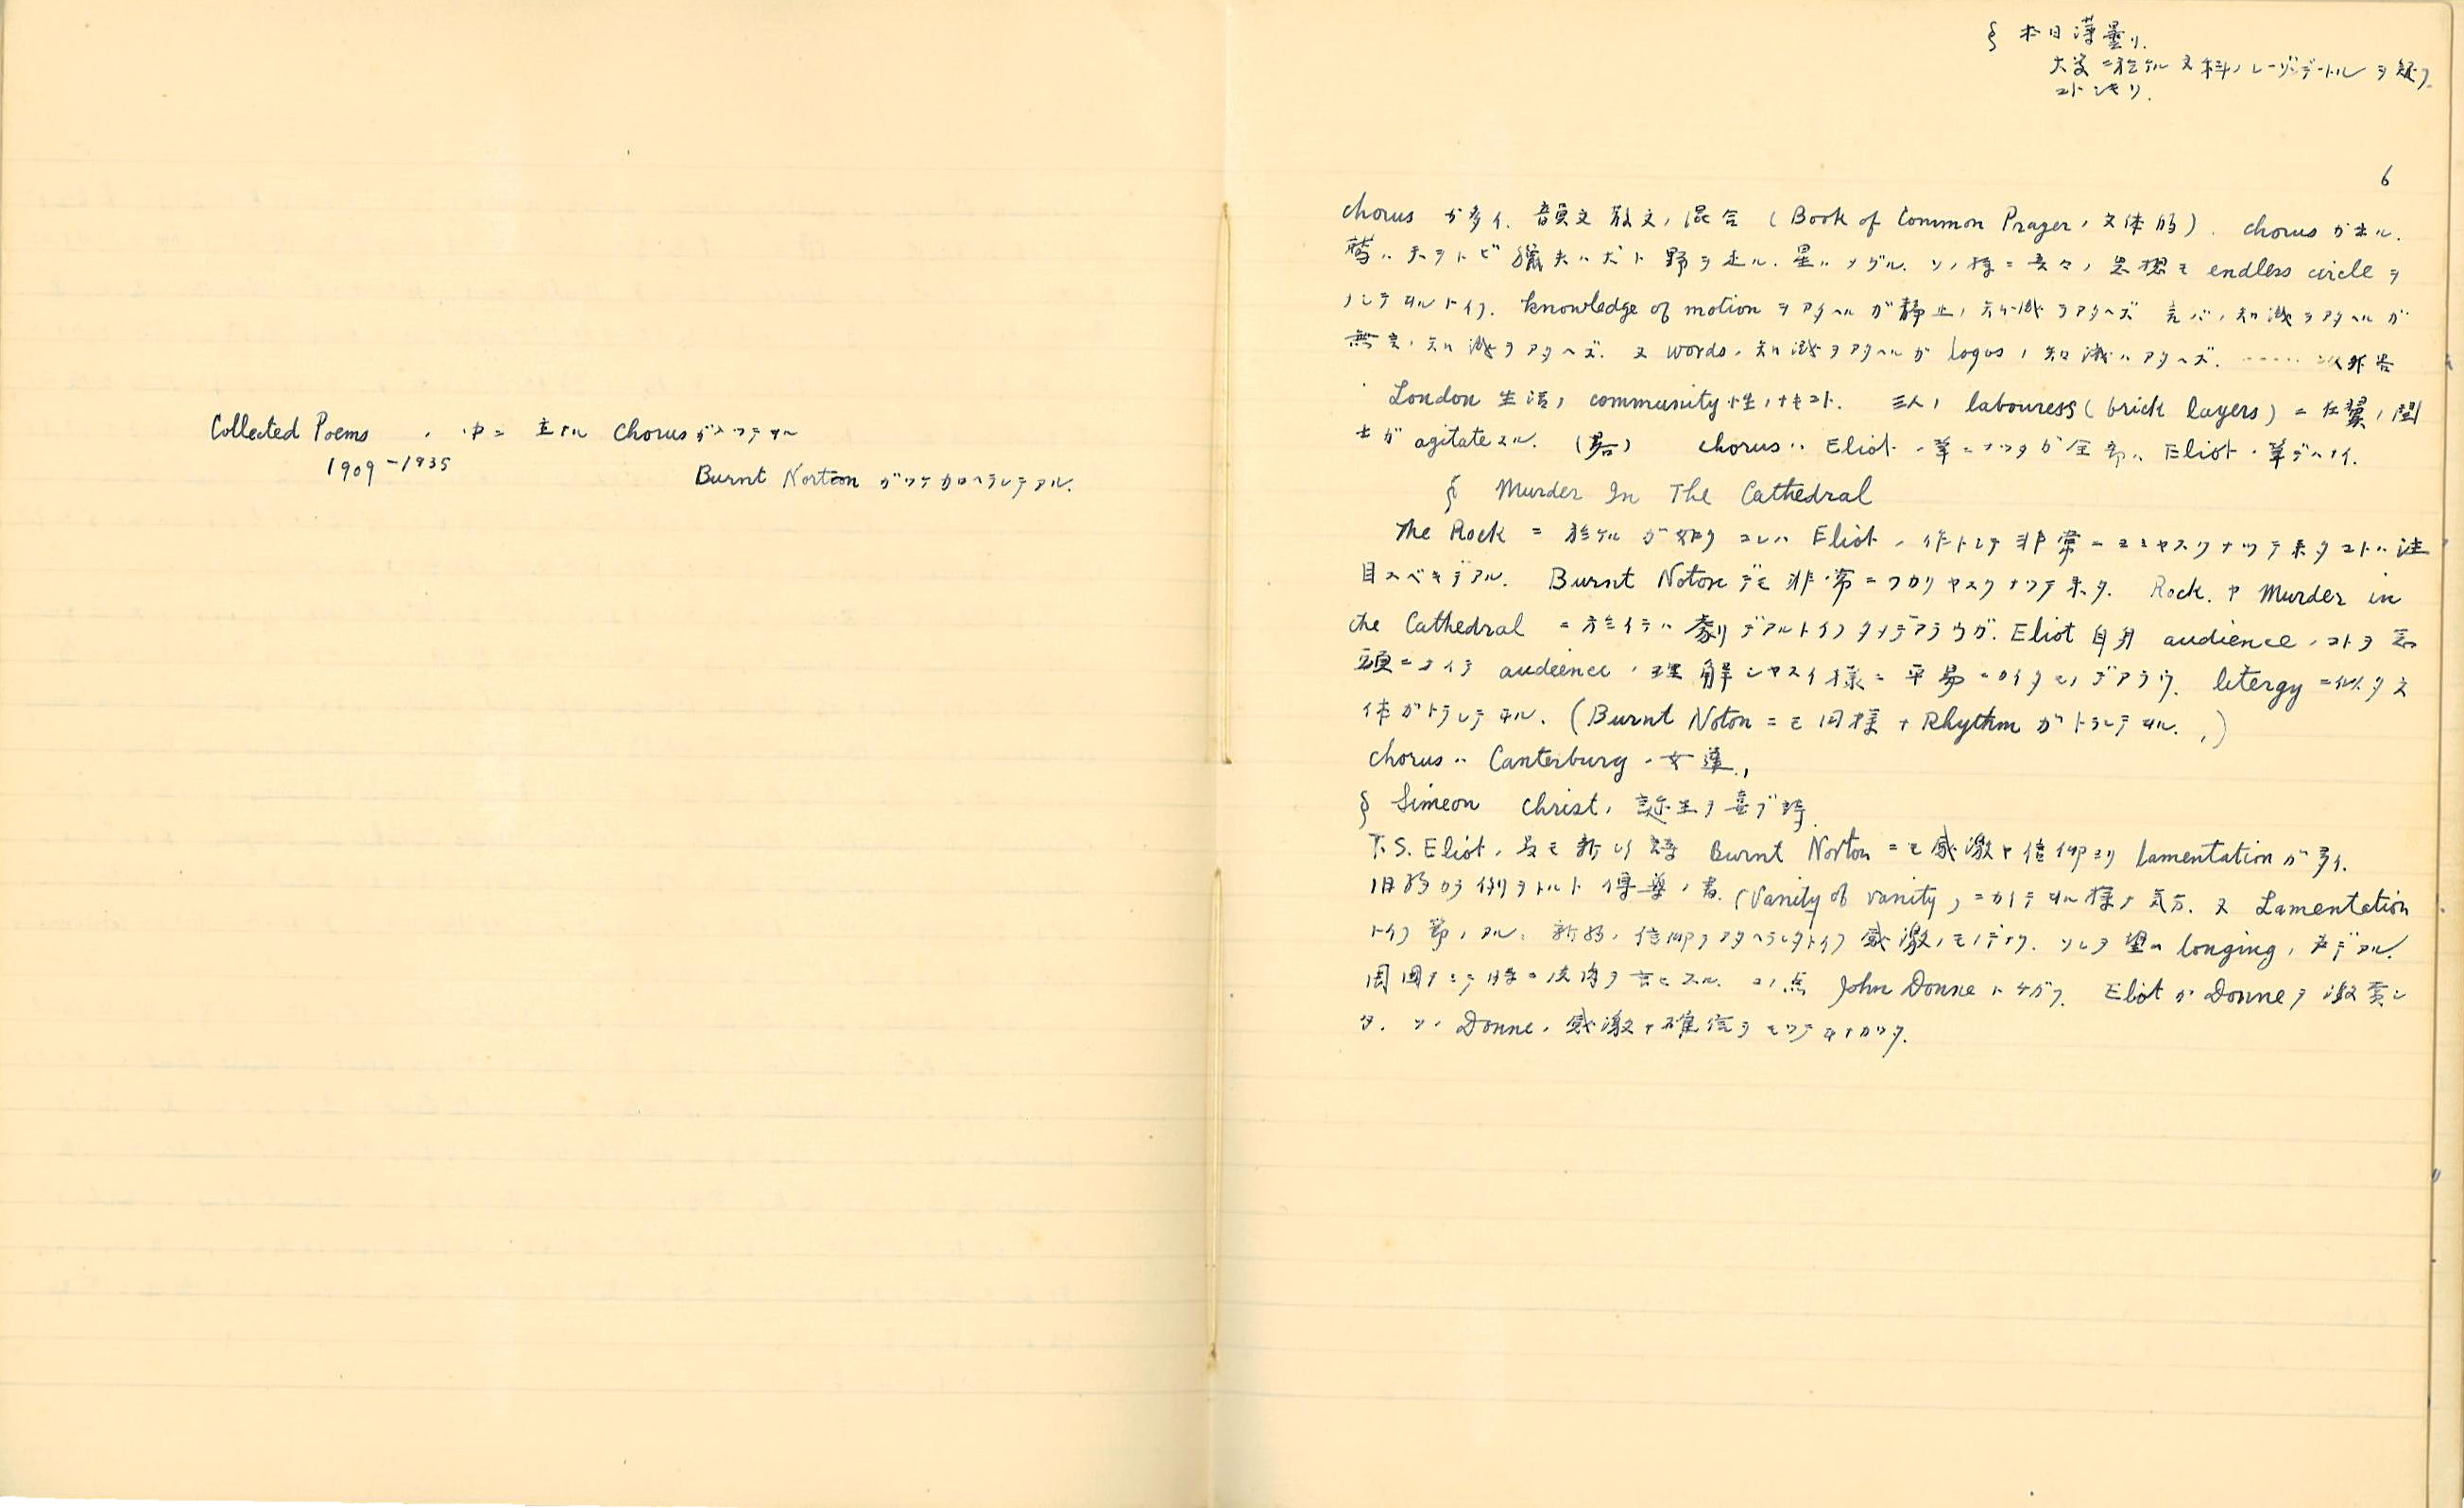 Collected Poems ノ中ニ 主ナル chorus ガ入ツテヰル
1909-1935
Burnt Norton ガツケカロヘラレテアル.
§ 本日薄曇リ.
大学ニ於ケル文科ノレーゾンデートルヲ疑フ
コトシキリ.
6
chorus ガ多イ. 韻文散文ノ混合 (Book of Common Prayer ノ文体的). chorus ガ出ル.
鷲ハ天ヲトビ猟夫ハ犬ト野ヲ走ル. 星ハメグル. ソノ様ニ我々ノ思想モ endless circle ヲ
ナシテヰルトイフ. knowledge of motion ヲアタヘルガ静止ノ知識ヲアタヘズ 言バノ知識ヲアタヘルガ
無言ノ知識ヲアタヘズ. 又 words ノ知識ヲアタヘルガ logos ノ知識ハアタヘズ. ......以外略
London 生活ノ community 性ノナキコト. 三人ノ labouress (brick layers) ニ左翼ノ闘
士ガ agitate スル. (略) chorus ハ Eliot ノ筆ニナツタガ全部ハ Eliot ノ筆デハナイ.
§ Murder In The Cathedral
The Rock ニ於ケルガ如ク コレハ Eliot ノ作トシテ非常ニヨミヤスクナツテ来タコトハ注
目スベキデアル. Burnt Noton デモ非常ニワカリヤスクナツテ来タ. Rock. ヤ Murder in
the Cathedral ニ於イテハ劇デアルトイフタメデアラウガ. Eliot 自身 audience ノコトヲ念
頭ニオイテ audience ノ理解シヤスイ様ニ平易ニカイタモノデアラウ. litergy ニ似タ文
体ガトラレテヰル. (Burnt Noton ニモ同様ナ Rhythm ガトラレテヰル.)
chorus ハ Canterbury ノ女達.
§ Simeon Christ ノ誕生ヲ喜ブ詩.
T.S. Eliot ノ最モ新シイ詩 Burnt Norton ニモ感激ヤ信仰ヨリ lamentation ガ多イ.
旧約カラ例ヲトルト伝導ノ書. (Vanity of vanity) ニカイテヰル様ナ気方. 又 Lamentation
トイフ節ノアル. 新約ノ信仰ヲアタヘラレタトイフ感激ノモノデナク. ソレヲ望ム longing ノ声デアル.
周囲ナミテ時ニ皮肉ヲ言ヒスル. コノ点 John Donne トチガフ. Eliot ガ Donne ヲ激賞シ
タ. ソノ Donne ノ感激ヤ確信ヲモツテヰナカツタ.